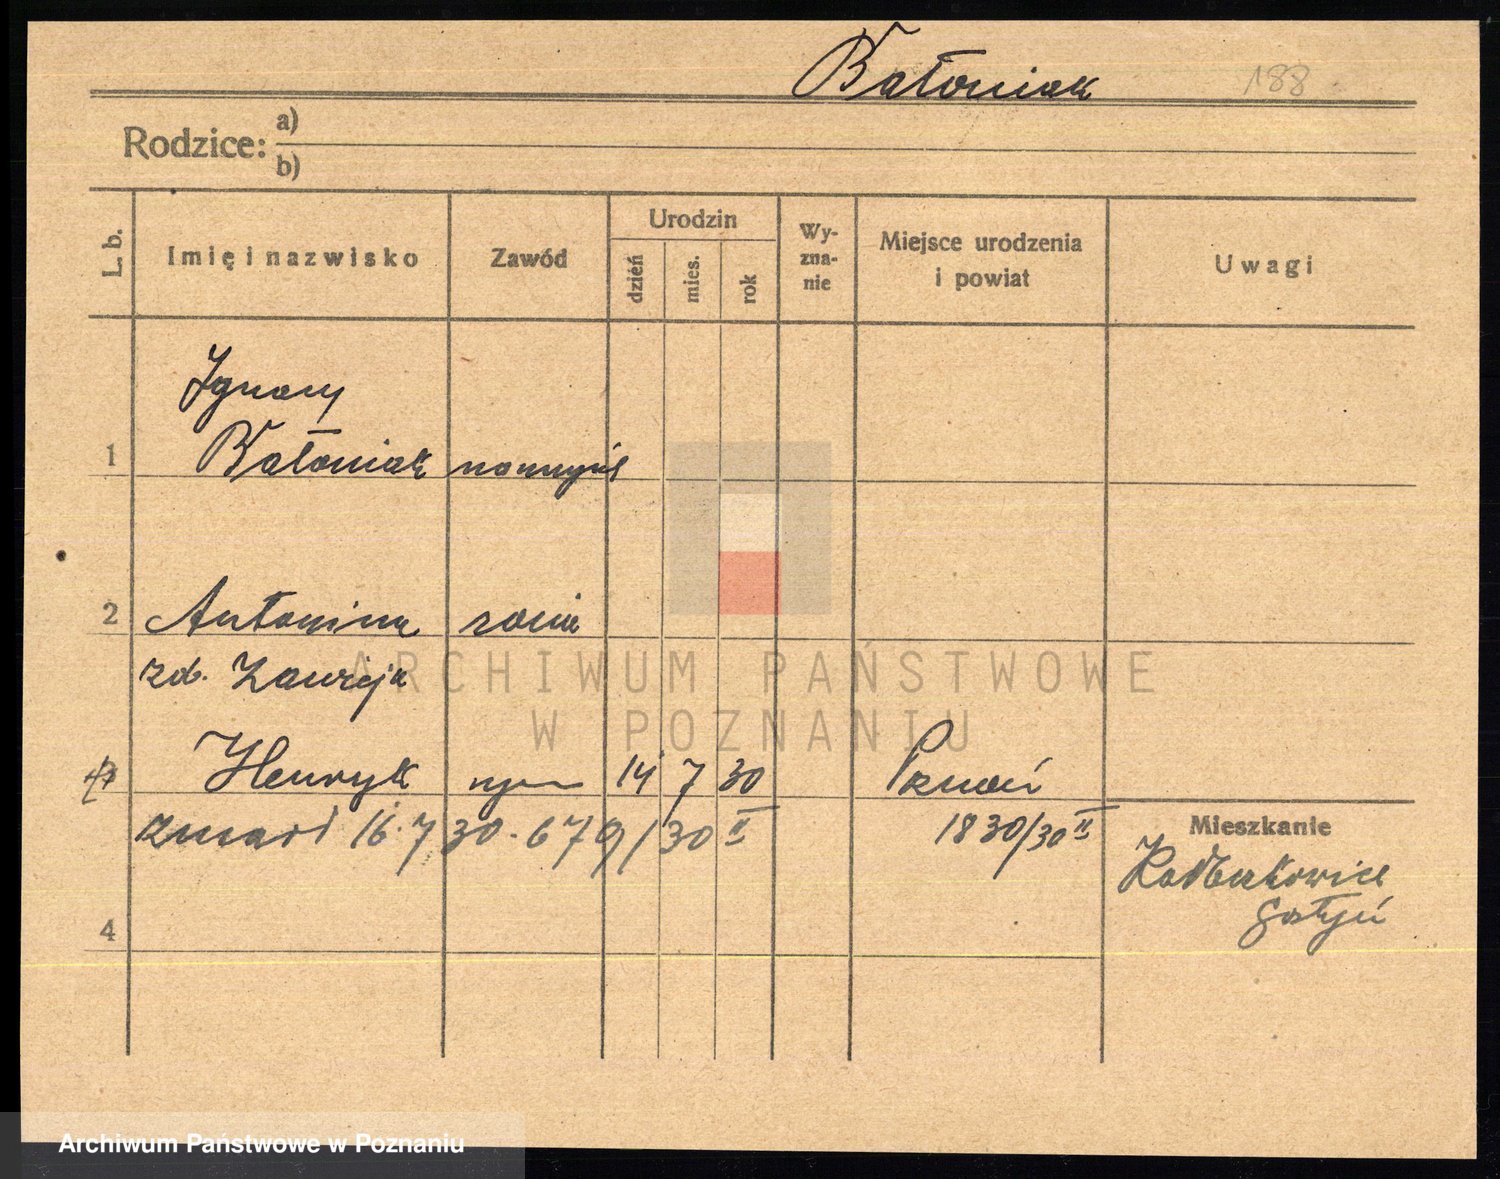 Batoniak 188
Rodzice: a)
b)
L. b. Imię i nazwisko Zawód Urodzin dzień mies. rok Wy-zna-nie Miejsce urodzenia i powiat Uwagi
Ignacy
1 Batoniak
2 Antonina żona
zd.
Henryk syn 14 7 30 Poznań
zmarł 16.7 30. 679/30 II 1830/30 II
Mieszkanie
Gostyń
4
ARCHIWUM PAŃSTWOWE
W POZNANIU
Archiwum Państwowe w Poznaniu